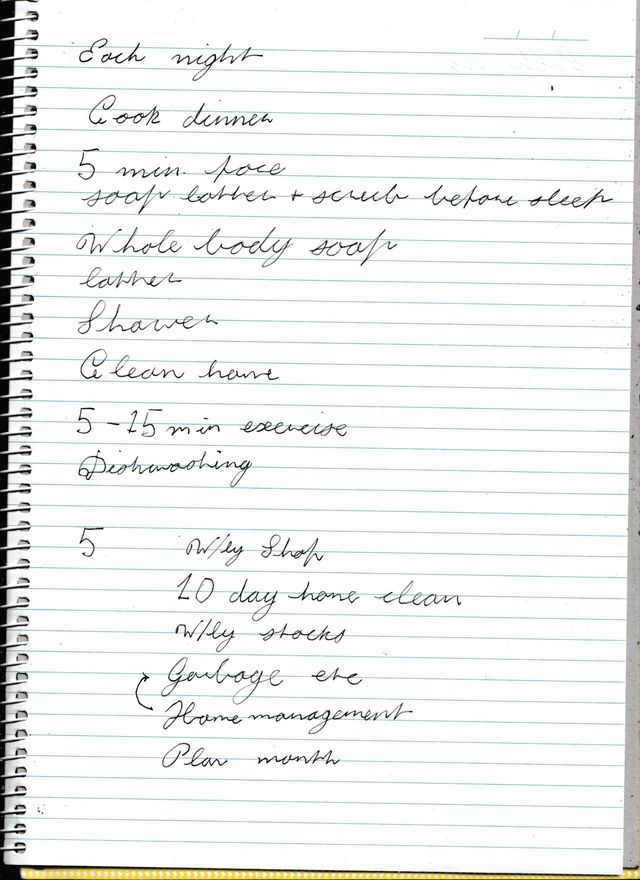 Each night
Cook dinner
5 min. face
soap lather + scrub before sleep
Whole body soap
lather
Shower
Clean home
5-15 min exercise
Dishwashing
5 W/ly Shop
10 day home clean
W/ly stocks
Garbage etc
Home management
Plan month